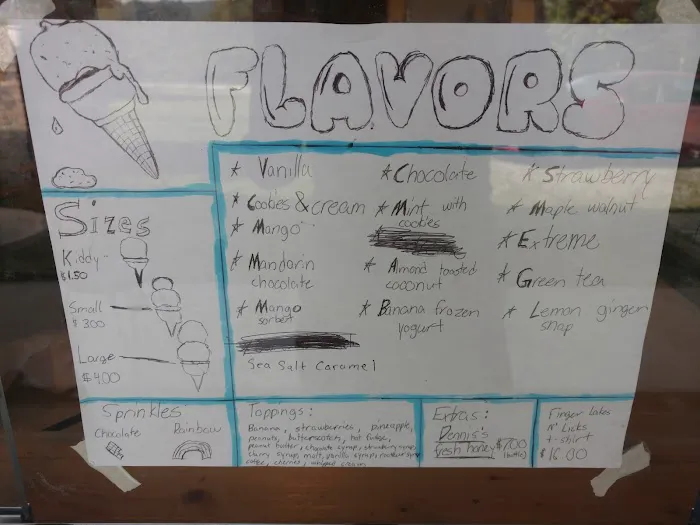 FLAVORS
* Vanilla
* Chocolate
* Strawberry
* Cookies & cream
* Mint with
cookies
* Maple walnut
* Mango
* Extreme
* Mandarin
chocolate
* Almond toasted
coconut
* Green tea
* Mango
sorbet
* Banana frozen
yogurt
* Lemon ginger
snap
Sea Salt Caramel
Sizes
Kiddy -
$1.50
Small
$3.00
Large
$4.00
Sprinkles
Chocolate Rainbow
Toppings:
Banana, strawberries, pineapple,
peanuts, butterscotch, hot fudge,
peanut butter, chocolate syrup, strawberry syrup,
cherry syrup, malt, vanilla syrup,
cherries, whipped cream
Extras:
Dennis's
fresh honey $7.00
(bottle)
Finger Lakes
n' Licks
t-shirt
$16.00